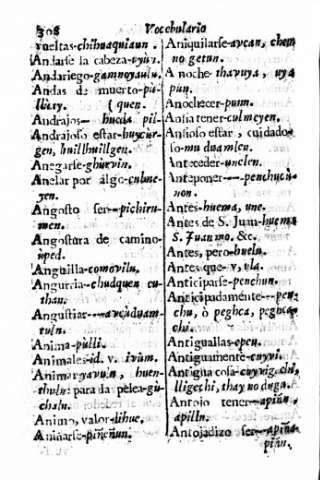 308 Vocabulario
vueltas-chihuaquiaun.
Andarse la cabeza-uyùv.
Andariego-gamnoyaulu.
Andas de muerto-
Andrajos-- pil-
Andrajoso estar-huycùr-
gen, huilhuillgen.
Anegarse-ghùrvin.
Anelar por algo-culme-
yen.
Angosto ser--pichiru-
men.
Angostura de camino-
Anguilla-comovilu.
Angurria-chudquen cu-
than.
Angustiar---avcaduam-
tuln.
Anima-pùlli.
Animales-id. v. ivùm.
huen-
thuln: para la pelea-gù-
chaln.
Animo, valor-thue.
Aniñarse-piñeñun.
Aniquilarse-avcan, chem
no getun.
A noche-thavuya, uya
pùn.
Anochecer-punn.
Ansia tener-culmeyen.
Ansioso estar, cuidado-
so-mu duamlen.
Anteceder-unelen.
Anteponer---penchucù-
non.
Antes-huema, une.
Antes de S. Juan-huema
S. Juanmo. &c.
Antes, pero-hueln.
Antes que-v, ula.
Anticiparse-penchun.
Anticipadamente--pen-
chu, ò peghca,
chi.
Antiguallas-open.
Antiguamente-cuyvi.
Antigua cosa-cuyvigechi,
lligechi, thaynoduga.
Antojo tener--apiñn,
apilln.
Antojadizo ser--apiña-
piñn.